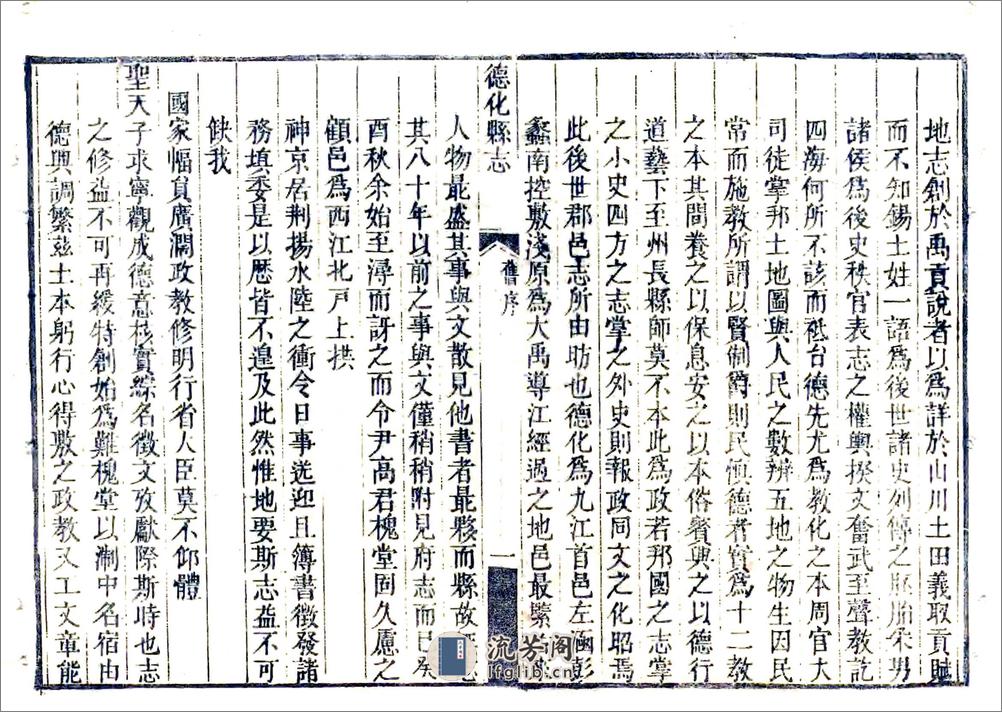 地志創於禹貢說者以爲詳於山川土田義取貢賦
而不知錫土姓一語爲後世諸史列傳之胚胎采男
諸侯爲後史秩官表志之權輿揆文奮武至聲教訖
四海何所不該而祗台德先尤爲教化之本周官大
司徒掌邦土地圖與人民之數辨五地之物生因民
常而施教所謂以賢制爵則民慎德者實爲十二教
之本其間養之以保息安之以本俗賓興之以德行
道藝下至州長縣師莫不本此爲政若邦國之志掌
之小史四方之志掌之外史則報政同文之化昭焉
此後世郡邑志所由昉也德化爲九江首邑左湎彭
蠡南控敷淺原爲大禹導江經過之地邑最緊
德化縣志
舊序
一
人物最盛其事與文散見他書者最夥而縣故
其八十年以前之事與文僅稍稍附見府志而已癸
酉秋余始至潯而訝之而令尹高君槐堂固久慮之
顧邑爲西江北戶上拱
神京居荆揚水陸之衝令日事迻迎且簿書徵發諸
務填委是以歷皆不遑及此然惟地要斯志益不可
缺我
國家幅員廣濶政教修明行省人臣莫不仰體
聖天子求寧觀成德意核實綜名徵文攷獻際斯時也志
之修益不可再緩特創始爲難槐堂以淛中名宿由
德興調繁茲土本躬行心得敷之政教又工文章能
流芳阁
lfglib.com